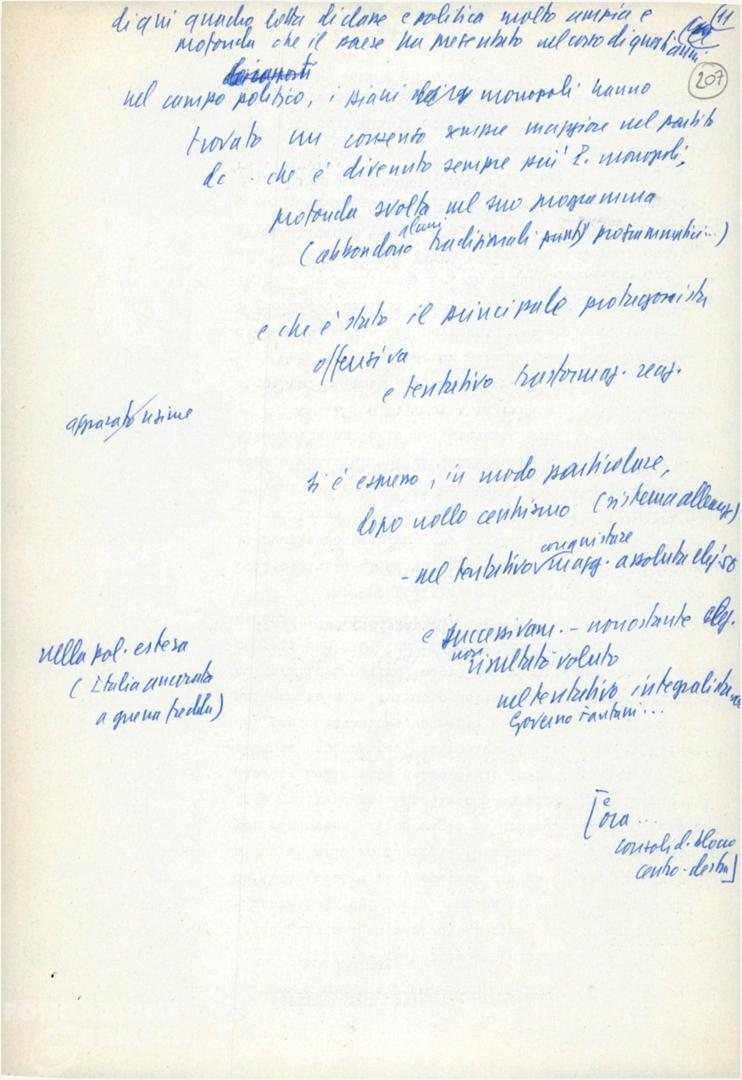 di qui quadro lotta di classe e politica molto ampia e
profonda che il paese ha presentato nel corso di questi anni.
11
207
nel campo politico, i piani monopoli hanno
trovato un consenso sempre maggiore nel partito
dc - che è divenuto sempre più P. monopoli,
profonda svolta nel suo programma
(abbandono alcuni tradizionali punti programmatici...)
e che è stato il principale protagonista
offensiva
e tentativo trasformaz. reaz.
apparato regime
si è espresso, in modo particolare,
dopo crollo centrismo (sistema alleanze)
- nel tentativo conquistare magg. assoluta elez. 58
e successivam. - nonostante elez.
non risultato voluto
nel tentativo integralista
Governo Fanfani...
nella pol. estera
(Italia ancorata
a guerra fredda)
[è ora ...
consolid. blocco
centro-destra]
FONDAZIONE